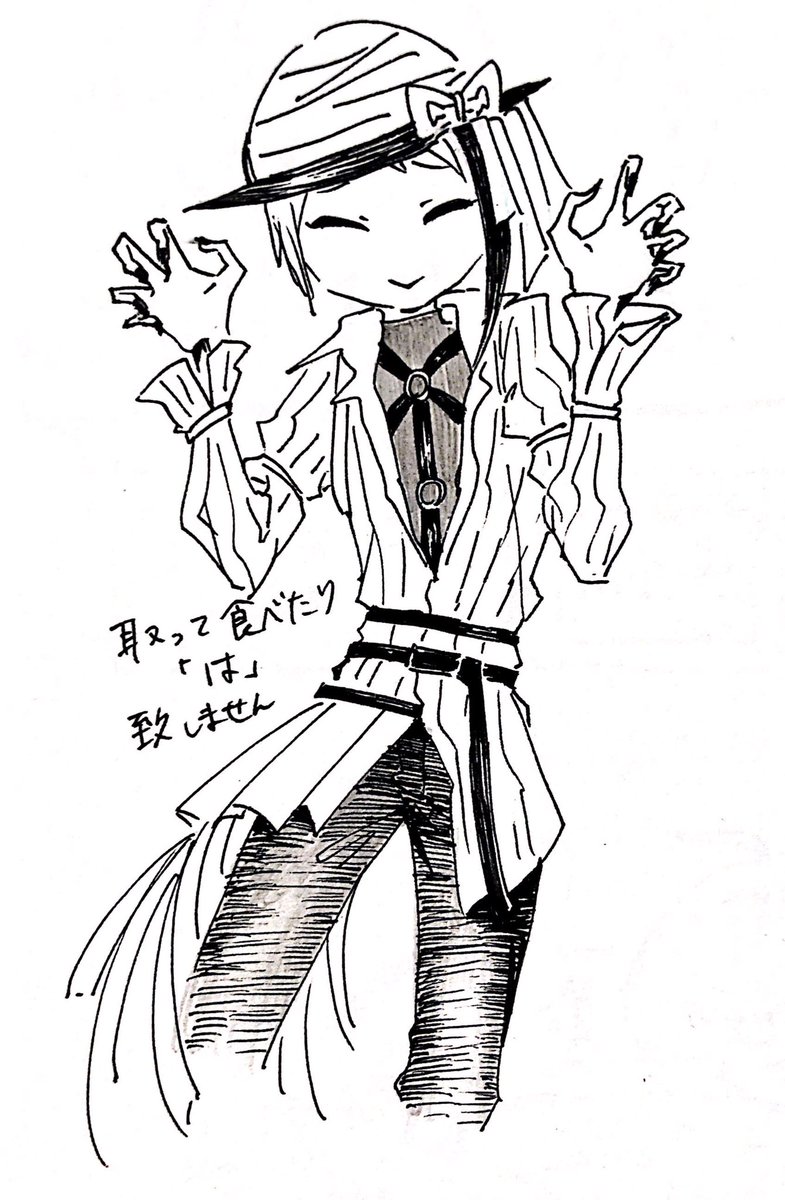 取って食べたり
「は」
致しません